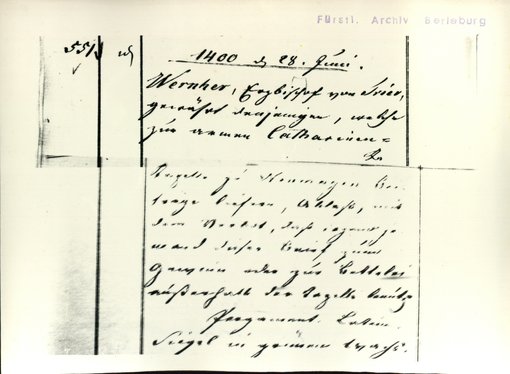 Fürstl. Archiv Berleburg
551
1400 d 28. Juni.
Wernher, Erzbischof von Trier,
gewährt denjenigen, welche
zur armen Catharinen=
Kapelle zu Hennagen Bei-
träge liefern, Ablaß, mit
dem Verbot, daß irgend je-
mand dieser Brief zum
Gewinn oder zur Bettelei
außerhalb der Kapelle benütze
Pergament. Latein.
Siegel in grünem Wachs.